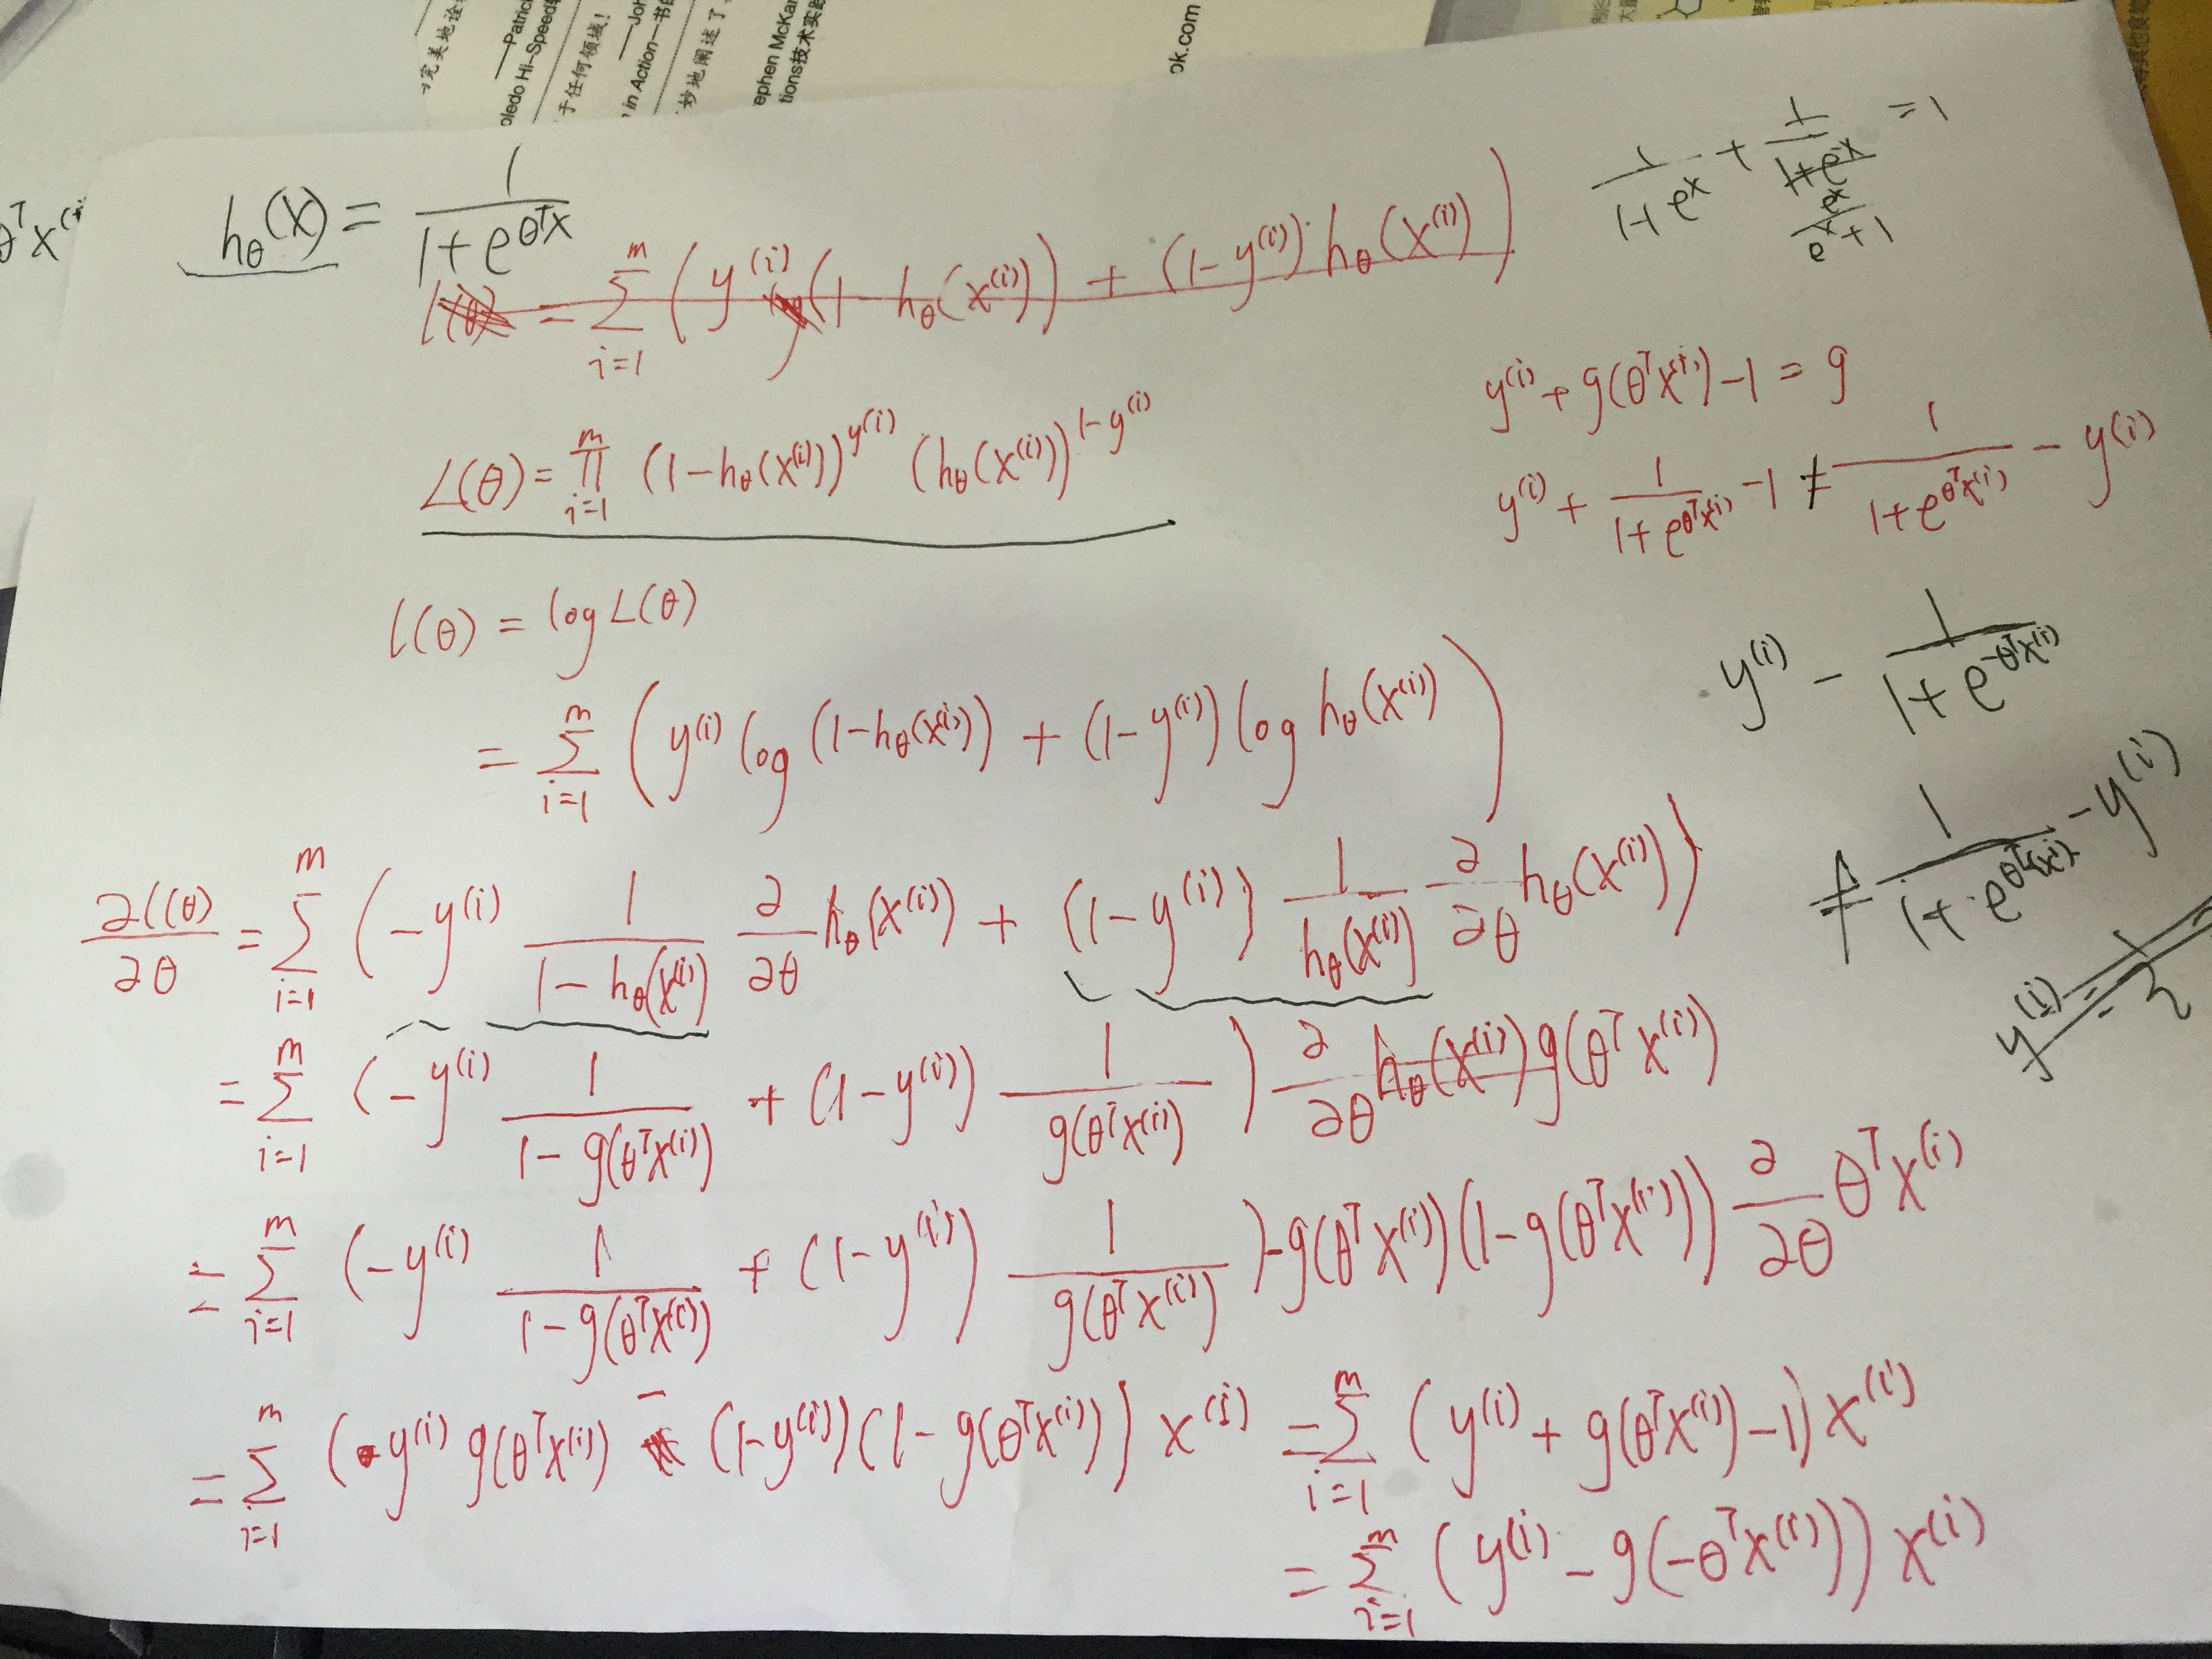 完美地诠
——Patric
oledo Hi-Speed
于任何领域!
——Joh
in Action一书的
妙地阐述了
ephen McKa
tions技术实践
ok.com
θᵀx⁽ⁱ
h_θ(x) = 1/(1+e^{θᵀx})
1/(1+e^x) + 1/(1+e^x) = 1
e^x/(e^x+1)
l(θ) = Σ_{i=1}^{m} (y^{(i)}(1-h_θ(x^{(i)})) + (1-y^{(i)}) h_θ(x^{(i)}))
y^{(i)} + g(θᵀx^{(i)}) - 1 = g
L(θ) = Π_{i=1}^{m} (1-h_θ(x^{(i)}))^{y^{(i)}} (h_θ(x^{(i)}))^{1-y^{(i)}}
y^{(i)} + 1/(1+e^{θᵀx^{(i)}}) - 1 ≠ 1/(1+e^{θᵀx^{(i)}}) - y^{(i)}
l(θ) = log L(θ)
y^{(i)} - 1/(1+e^{-θᵀx^{(i)}})
= Σ_{i=1}^{m} (y^{(i)} log(1-h_θ(x^{(i)})) + (1-y^{(i)}) log h_θ(x^{(i)}))
≠ 1/(1+e^{θᵀx^{(i)}}) - y^{(i)}
∂l(θ)/∂θ = Σ_{i=1}^{m} (-y^{(i)} 1/(1-h_θ(x^{(i)})) ∂/∂θ h_θ(x^{(i)}) + (1-y^{(i)}) 1/h_θ(x^{(i)}) ∂/∂θ h_θ(x^{(i)}))
= Σ_{i=1}^{m} (-y^{(i)} 1/(1-g(θᵀx^{(i)})) + (1-y^{(i)}) 1/g(θᵀx^{(i)})) ∂/∂θ h_θ(x^{(i)}) g(θᵀx^{(i)})
= Σ_{i=1}^{m} (-y^{(i)} 1/(1-g(θᵀx^{(i)})) + (1-y^{(i)}) 1/g(θᵀx^{(i)})) -g(θᵀx^{(i)})(1-g(θᵀx^{(i)})) ∂/∂θ θᵀx^{(i)}
= Σ_{i=1}^{m} (y^{(i)} g(θᵀx^{(i)}) - (1-y^{(i)})(1-g(θᵀx^{(i)}))) x^{(i)} = Σ_{i=1}^{m} (y^{(i)} + g(θᵀx^{(i)}) - 1) x^{(i)}
= Σ_{i=1}^{m} (y^{(i)} - g(-θᵀx^{(i)})) x^{(i)}